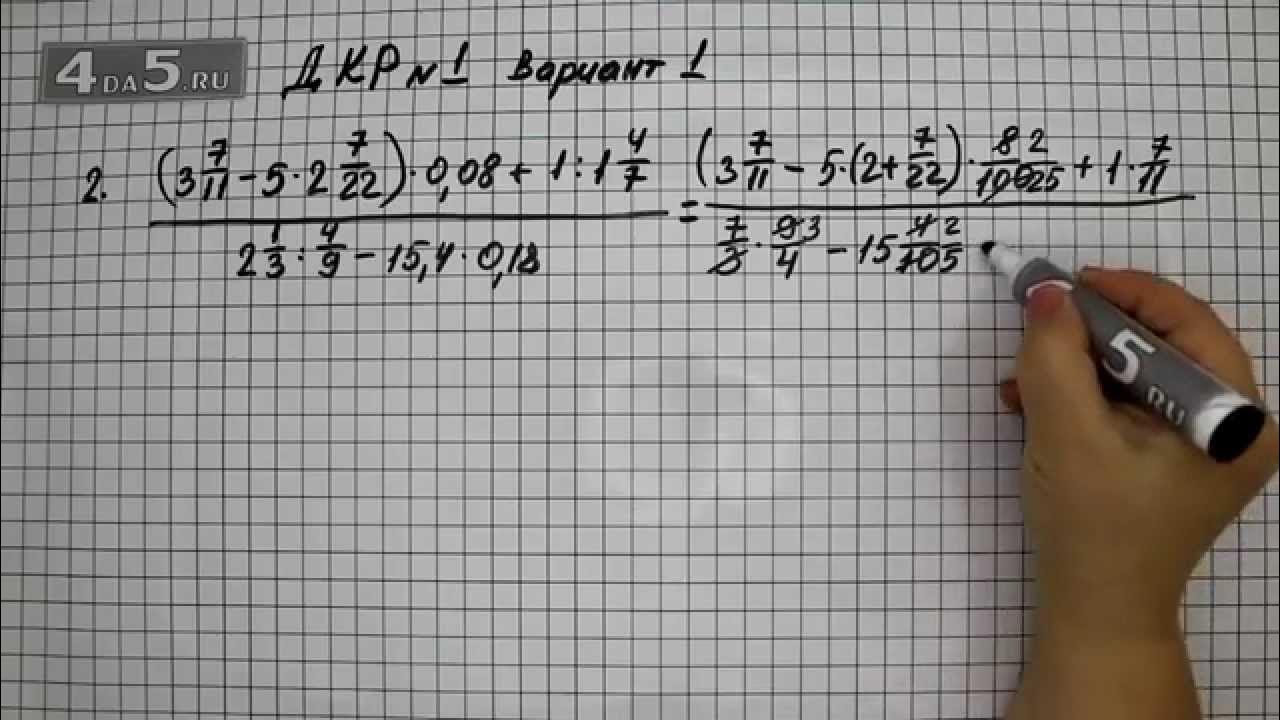 4DA5.RU
ДКР №1 Вариант 1
2. ((3 7/11 - 5 · 2 7/22) · 0,08 + 1 : 1 4/7) / (2 1/3 : 4/9 - 15,4 · 0,18) = ((3 7/11 - 5 · (2 + 7/22) · 8 2/100 25 + 1 · 7/11) / (7/3 · 9 3/4 - 15 4 2/10 5
5 RU